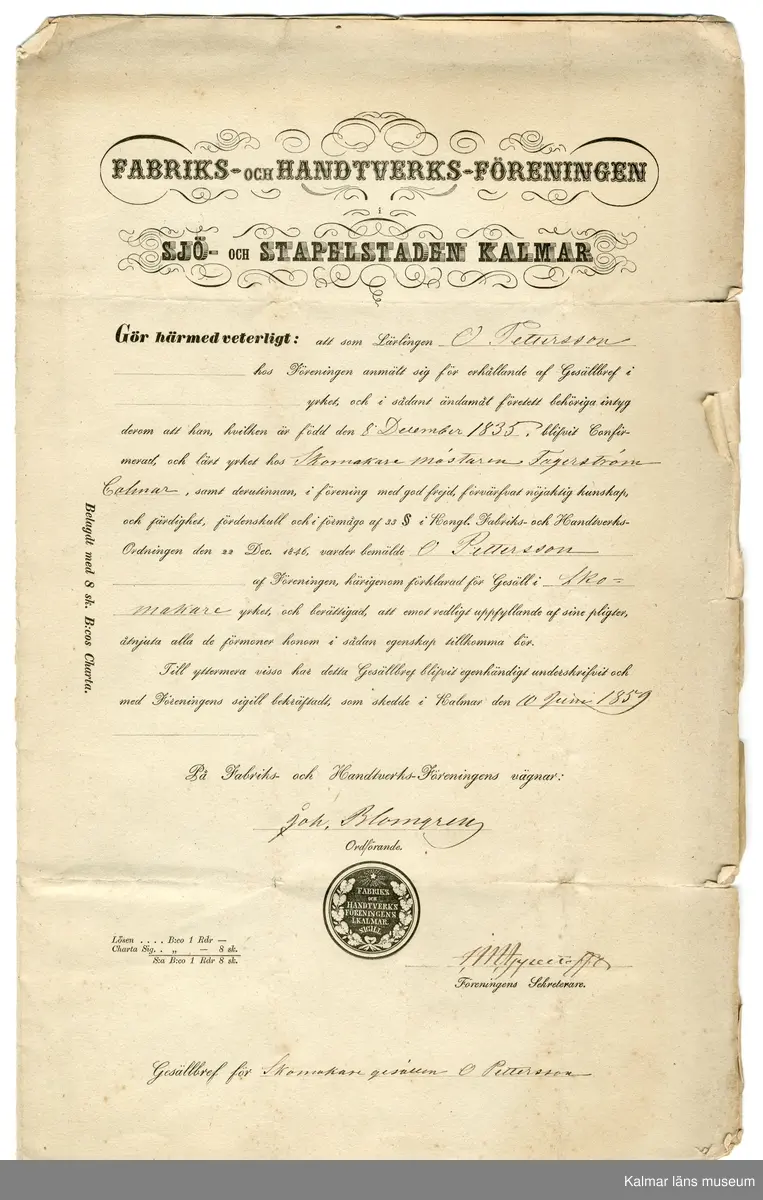 FABRIKS- OCH HANDTVERKS-FÖRENINGEN
i
SJÖ- OCH STAPELSTADEN KALMAR
Gör härmed veterligt: att som Lärlingen O Pettersson
hos Föreningen anmält sig för erhållande af Gesällbref i
yrket, och i sådant ändamål företett behöriga intyg
derom att han, hvilken är född den 8 December 1835, blifvit Confir-
merad, och lärt yrket hos Skomakare mästaren Fagerström
Calmar, samt derutinnan, i förening med god frejd, förvärfvat nöjaktig kunskap,
och färdighet, fördenskull och i förmågo af 33 § i Kongl. Fabriks- och Handtverks-
Ordningen den 22 Dec. 1846, varder bemälde O Pettersson
af Föreningen, härigenom förklarad för Gesäll i Sko=
makare yrket, och berättigad, att emot redligt uppfyllande af sine pligter,
åtnjuta alla de förmoner honom i sådan egenskap tillkomma bör.
Till yttermera visso har detta Gesällbref blifvit egenhändigt underskrifvit och
med Föreningens sigill bekräftadt, som skedde i Kalmar den 10 Juni 1859
På Fabriks- och Handtverks-Föreningens vägnar:
Joh. Blomgren
Ordförande.
FABRIKS
OCH
HANDTVERKS
FÖRENINGENS
I KALMAR
SIGILL
Lösen . . . . B:co 1 Rdr —
Charta Sig. . „ — 8 sk.
S:a B:co 1 Rdr 8 sk.
Föreningens Sekreterare.
Belagdt med 8 sk. B:cos Charta.
Gesällbref för Skomakare gesällen O Pettersson
Kalmar läns museum